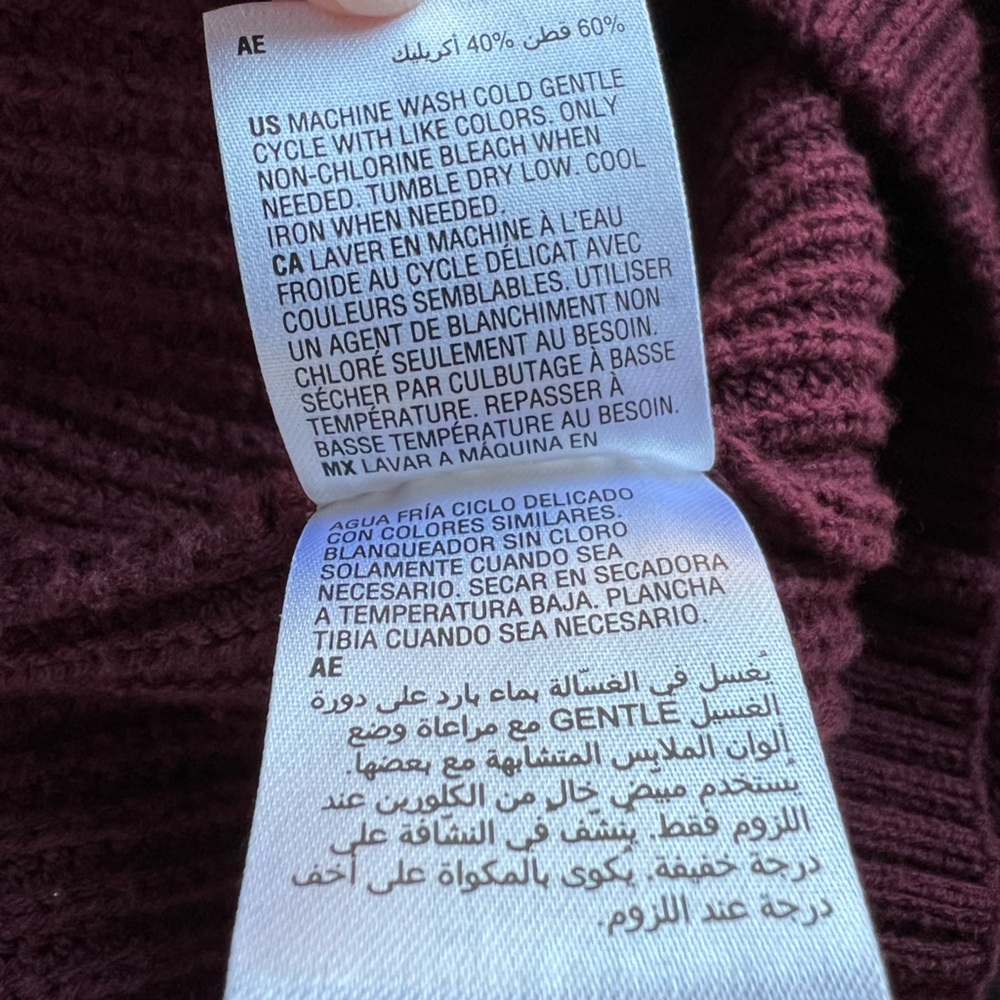 AE
60% قطن 40% أكريليك
US MACHINE WASH COLD GENTLE
CYCLE WITH LIKE COLORS. ONLY
NON-CHLORINE BLEACH WHEN
NEEDED. TUMBLE DRY LOW. COOL
IRON WHEN NEEDED.
CA LAVER EN MACHINE À L'EAU
FROIDE AU CYCLE DÉLICAT AVEC
COULEURS SEMBLABLES. UTILISER
UN AGENT DE BLANCHIMENT NON
CHLORÉ SEULEMENT AU BESOIN.
SÉCHER PAR CULBUTAGE À BASSE
TEMPÉRATURE. REPASSER À
BASSE TEMPÉRATURE AU BESOIN.
MX LAVAR A MÁQUINA EN
AGUA FRÍA CICLO DELICADO
CON COLORES SIMILARES.
BLANQUEADOR SIN CLORO
SOLAMENTE CUANDO SEA
NECESARIO. SECAR EN SECADORA
A TEMPERATURA BAJA. PLANCHA
TIBIA CUANDO SEA NECESARIO.
AE
يُغسل في الغسّالة بماء بارد على دورة
الغسيل GENTLE مع مراعاة وضع
ألوان الملابس المتشابهة مع بعضها.
يُستخدم مبيّض خالٍ من الكلورين عند
اللزوم فقط. ينشّف في النشّافة على
درجة خفيفة. يُكوى بالمكواة على أخف
درجة عند اللزوم.